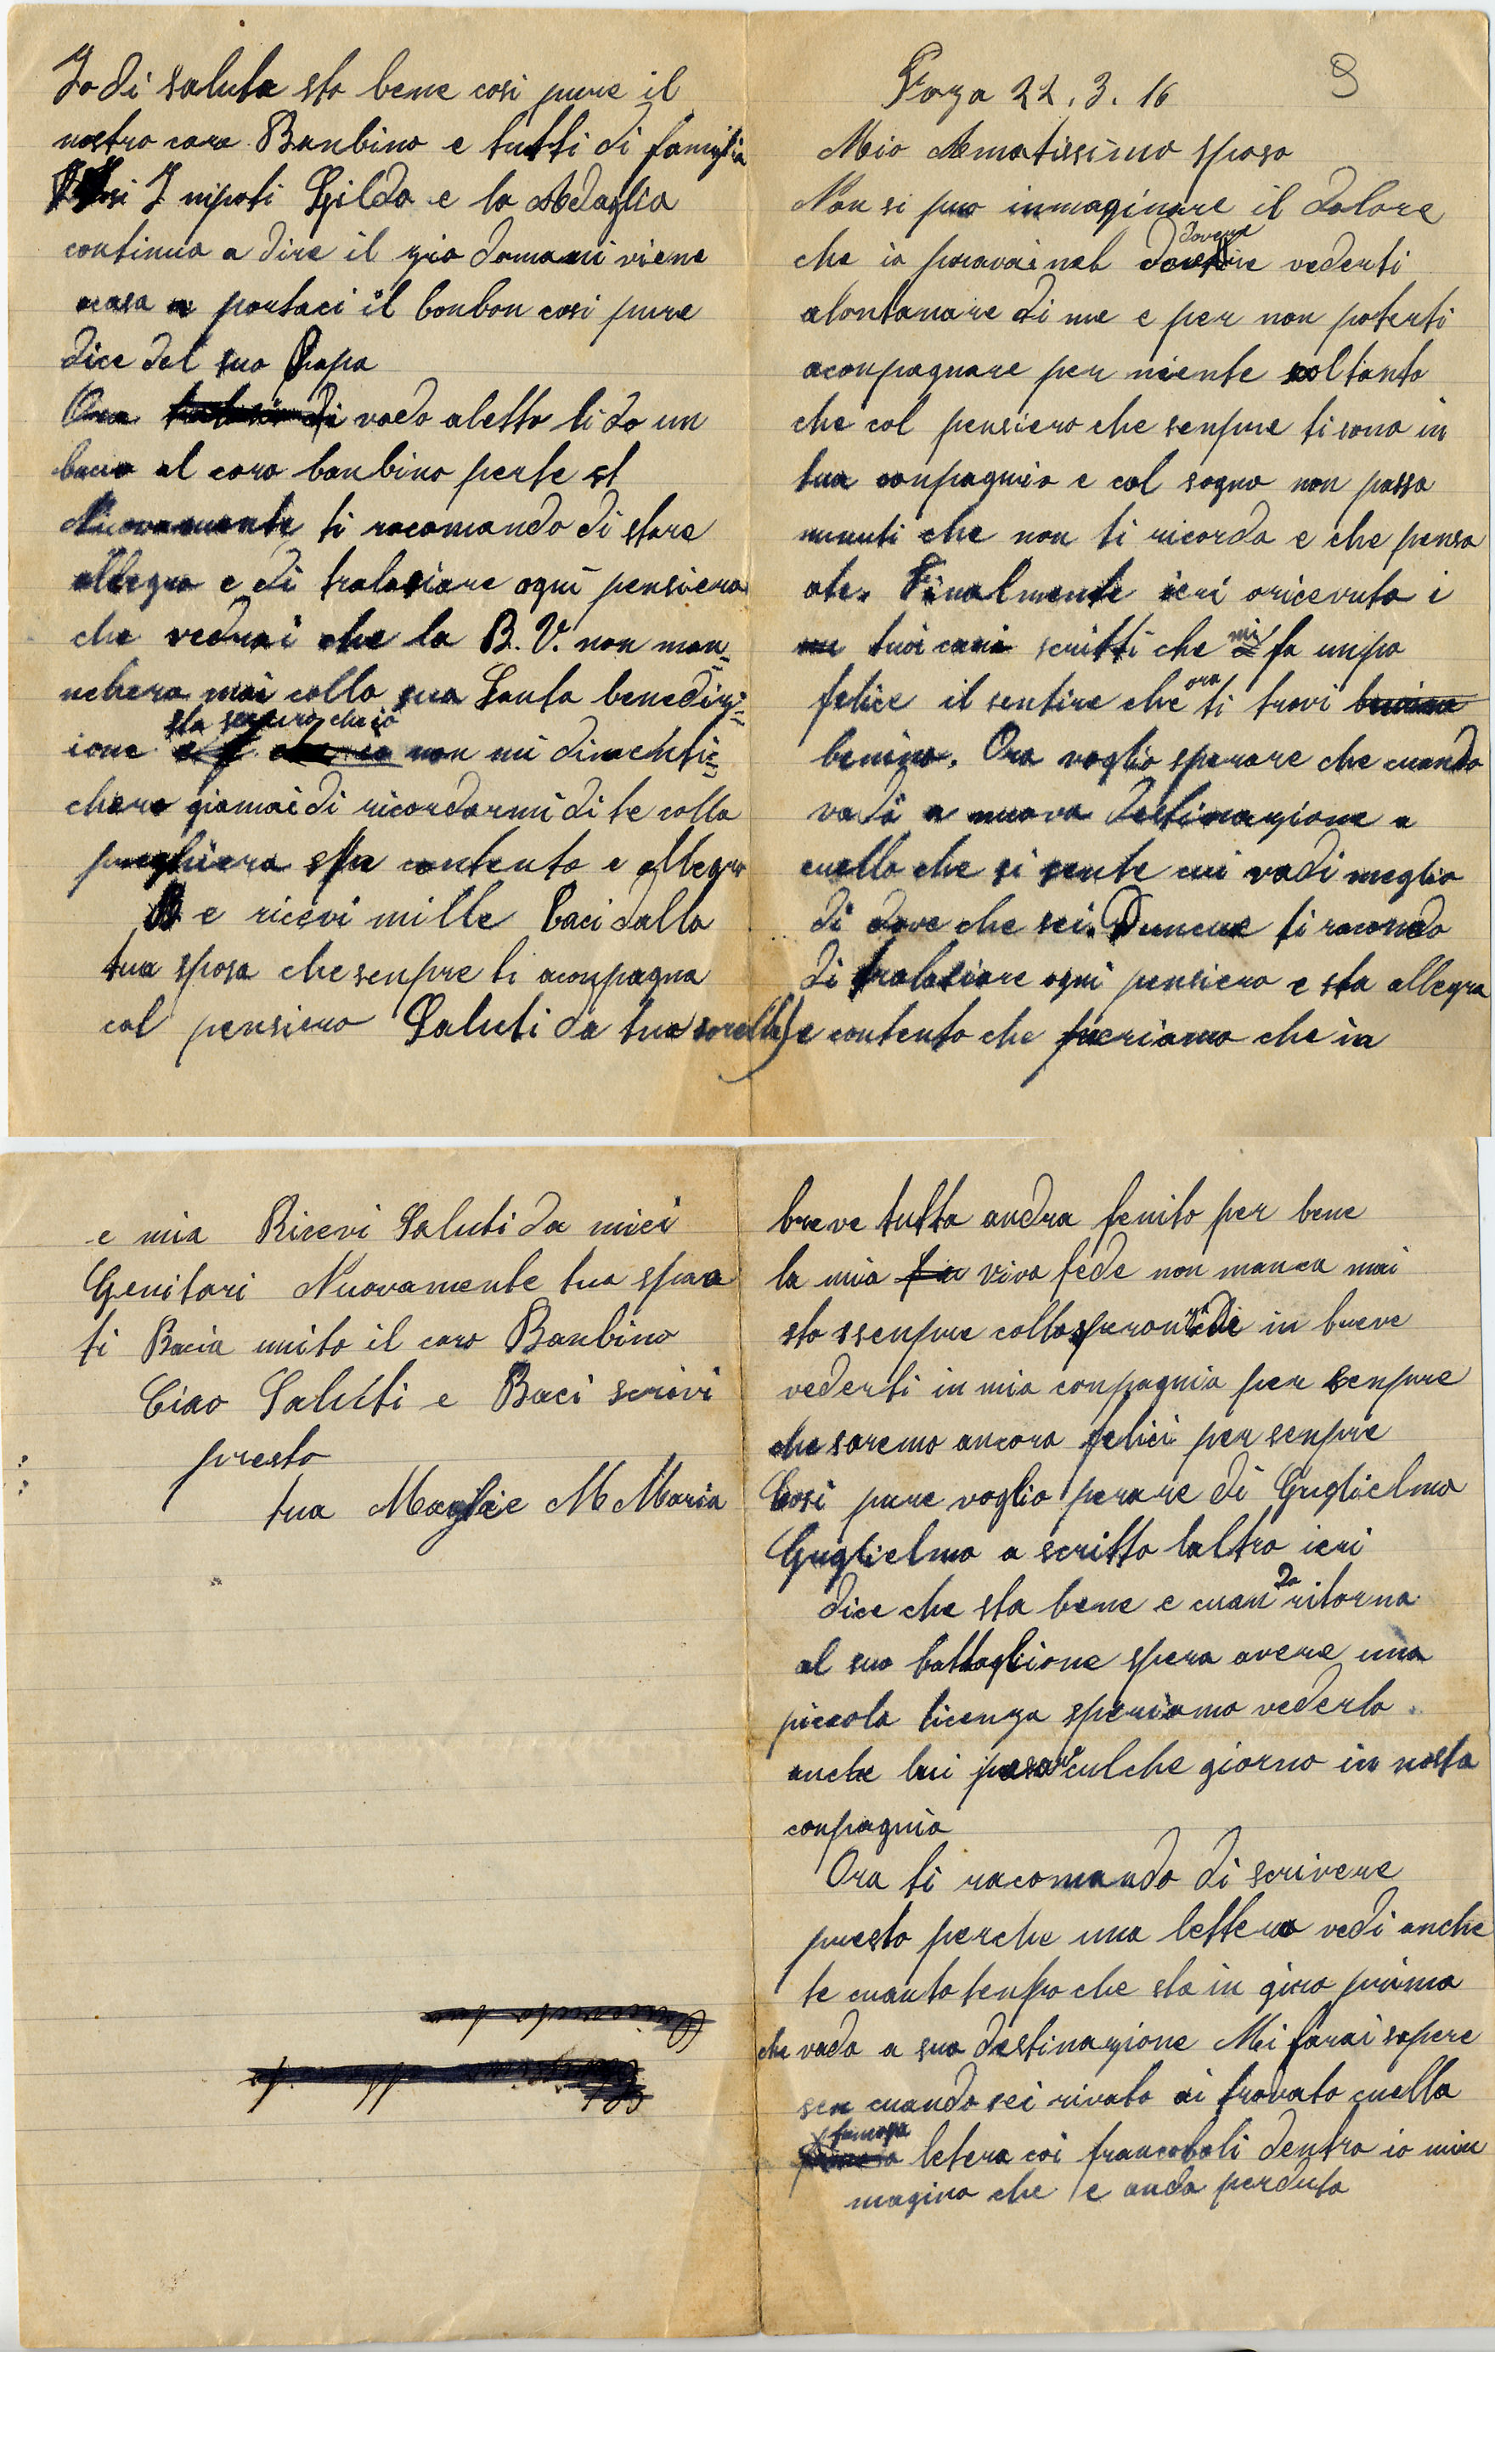 Foza 22. 3. 16
9
Mio Amatissimo sposo
Non si puo inmaginare il dolore
che io provai nel dovere vederti
alontanare di me e per non poterti
aconpagnare per niente soltanto
che col pensiero che senpre ti sono in
tua conpagnia e col sogno non passa
minuti che non ti ricorda e che penso
ate. Finalmente ieri oricevuto i
tuoi cari scritti che mi fa unpo
felice il sentire che ora ti trovi
benino. Ora voglio sperare che cuando
vadi a nuova destinazione a
cuello che si sente cui vadi meglio
di dove che sei. Duncue ti racomdo
di tralasiare ogni pensiero e sta allegra
e contento che speriamo che in
breve tutto andra fenito per bene
la mia viva fede non manca mai
sto ssenpre colla speronza di in breve
vederti in mia conpagnia per senpre
che saremo ancora felici per senpre
Cosi pure voglio perare di Guglielmo
Guglielmo a scritto laltro ieri
dice che sta bene e cuando ritorna
al suo battaglione spera avere una
piccola licenza speriamo vederlo
anche lui pasare culche giorno in nosta
conpagnia
Ora ti racomando di scrivere
presto perche una lettera vedi anche
te cuanto tenpo che sta in giro prima
che vada a sua destinazione Mi farai sapere
sen cuando sei rivato ai trovato cuella
famosa letera coi francoboli dentro io min
magino che e anda perduta
Io di saluta sto bene cosi pure il
nostro caro Banbino e tutti di famiglia
Cosi I nipoti Gildo e la Adaglia
continua a dire il zio domani viene
acasa a portaci il bonbon cosi pure
dice del suo Papa
Ora vado aletto ti do un
bacio al caro banbino perte st
Nuovamente ti racomando di stare
allegro e di tralasiare ogni pensiero
che vedrai che la B. V. non man=
nchera mai colla sua Santa benediz=
ione sta seguro che io non mi dimenti=
chero giamai di ricordarmi di te colla
preghiera sta contento e allegro
e ricevi mille baci dalla
tua sposa che senpre ti aconpagna
col pensiero Saluti da tua sorella
e mia Ricevi Saluti da miei
Genitori Nuovamente tua sposa
ti Bacia unito il caro Banbino
Ciao Saluti e Baci scrivi
presto
tua Moglie M Maria